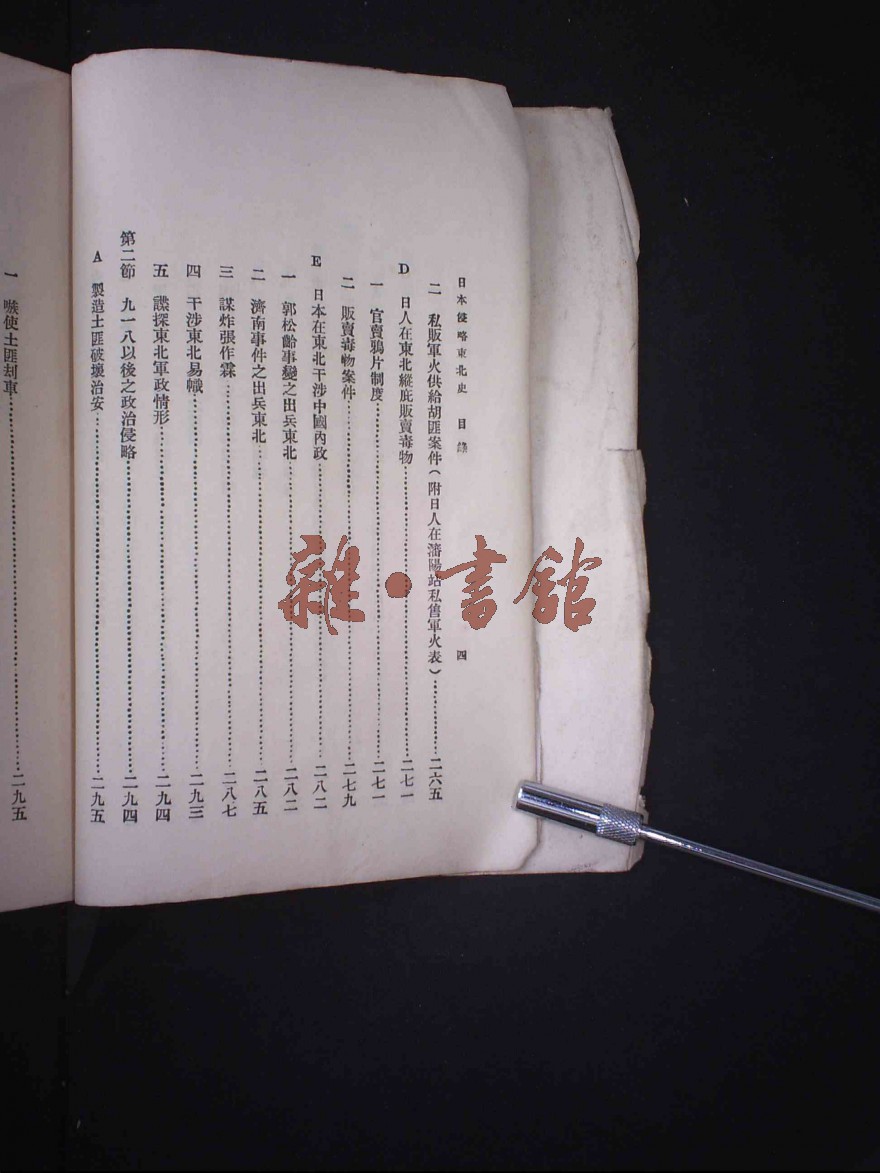 日本侵略東北史 目錄 四
二 私販軍火供給胡匪案件(附日人在瀋陽站私售軍火表)……二六五
D 日人在東北縱庇販賣毒物……二七一
一 官賣鴉片制度……二七一
二 販賣毒物案件……二七九
E 日本在東北干涉中國內政……二八二
一 郭松齡事變之出兵東北……二八二
二 濟南事件之出兵東北……二八五
三 謀炸張作霖……二八七
四 干涉東北易幟……二九三
五 諜探東北軍政情形……二九四
第二節 九一八以後之政治侵略……二九四
A 製造土匪破壞治安……二九五
一 嗾使土匪刦車……二九五
雜·書館